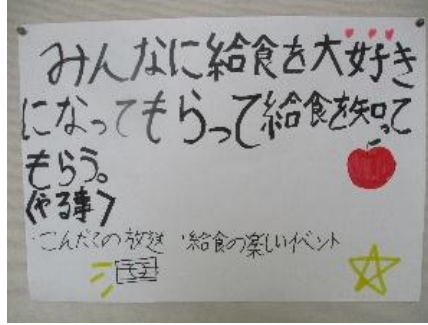 みんなに給食を大好き
になってもらって給食を知って
もらう。
〈やる事〉
・こんだての放送 ・給食の楽しいイベント